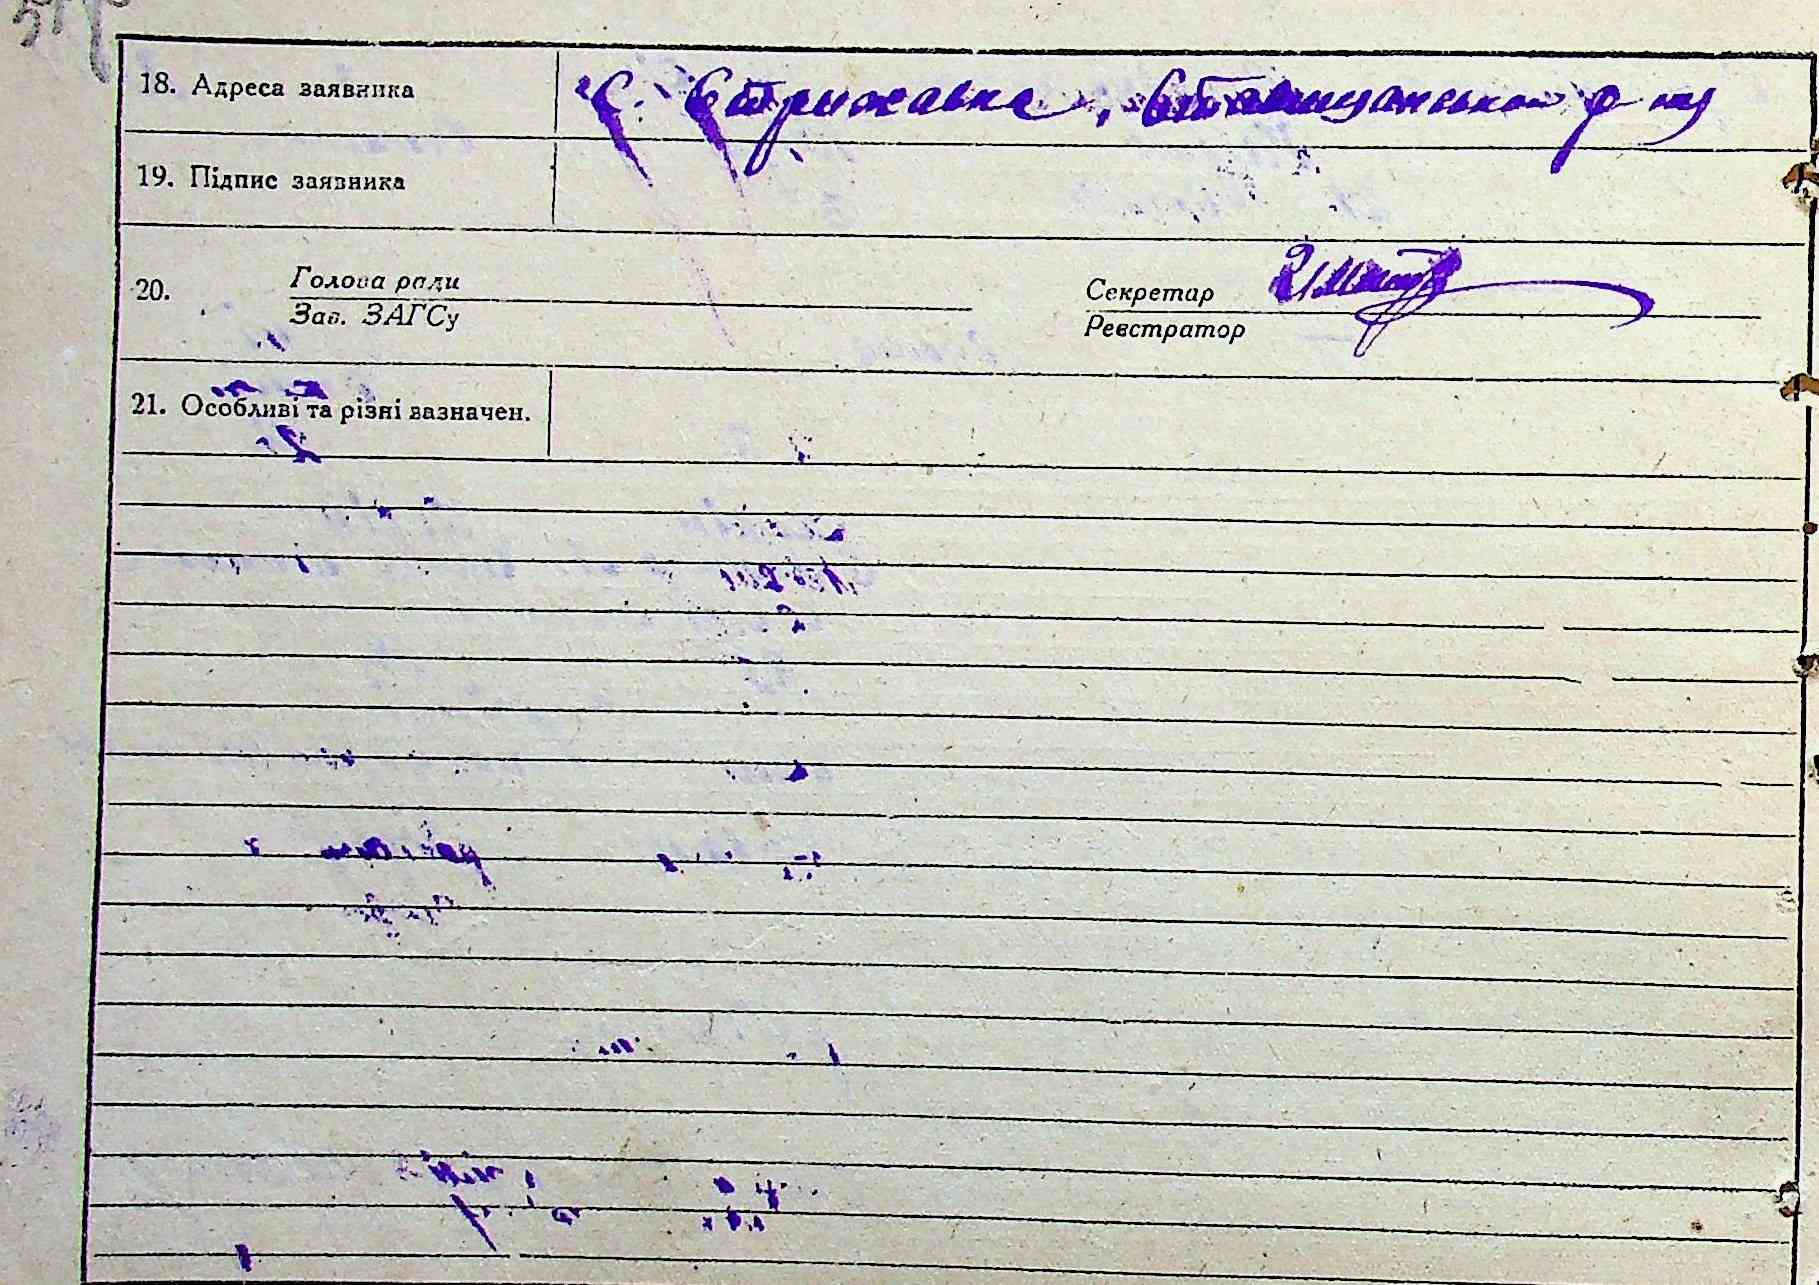 18. Адреса заявника с. Стрижавка, Ставищанського р-ну
19. Підпис заявника
20. Голова ради
Зав. ЗАГСу
Секретар
Реєстратор
21. Особливі та різні зазначен.